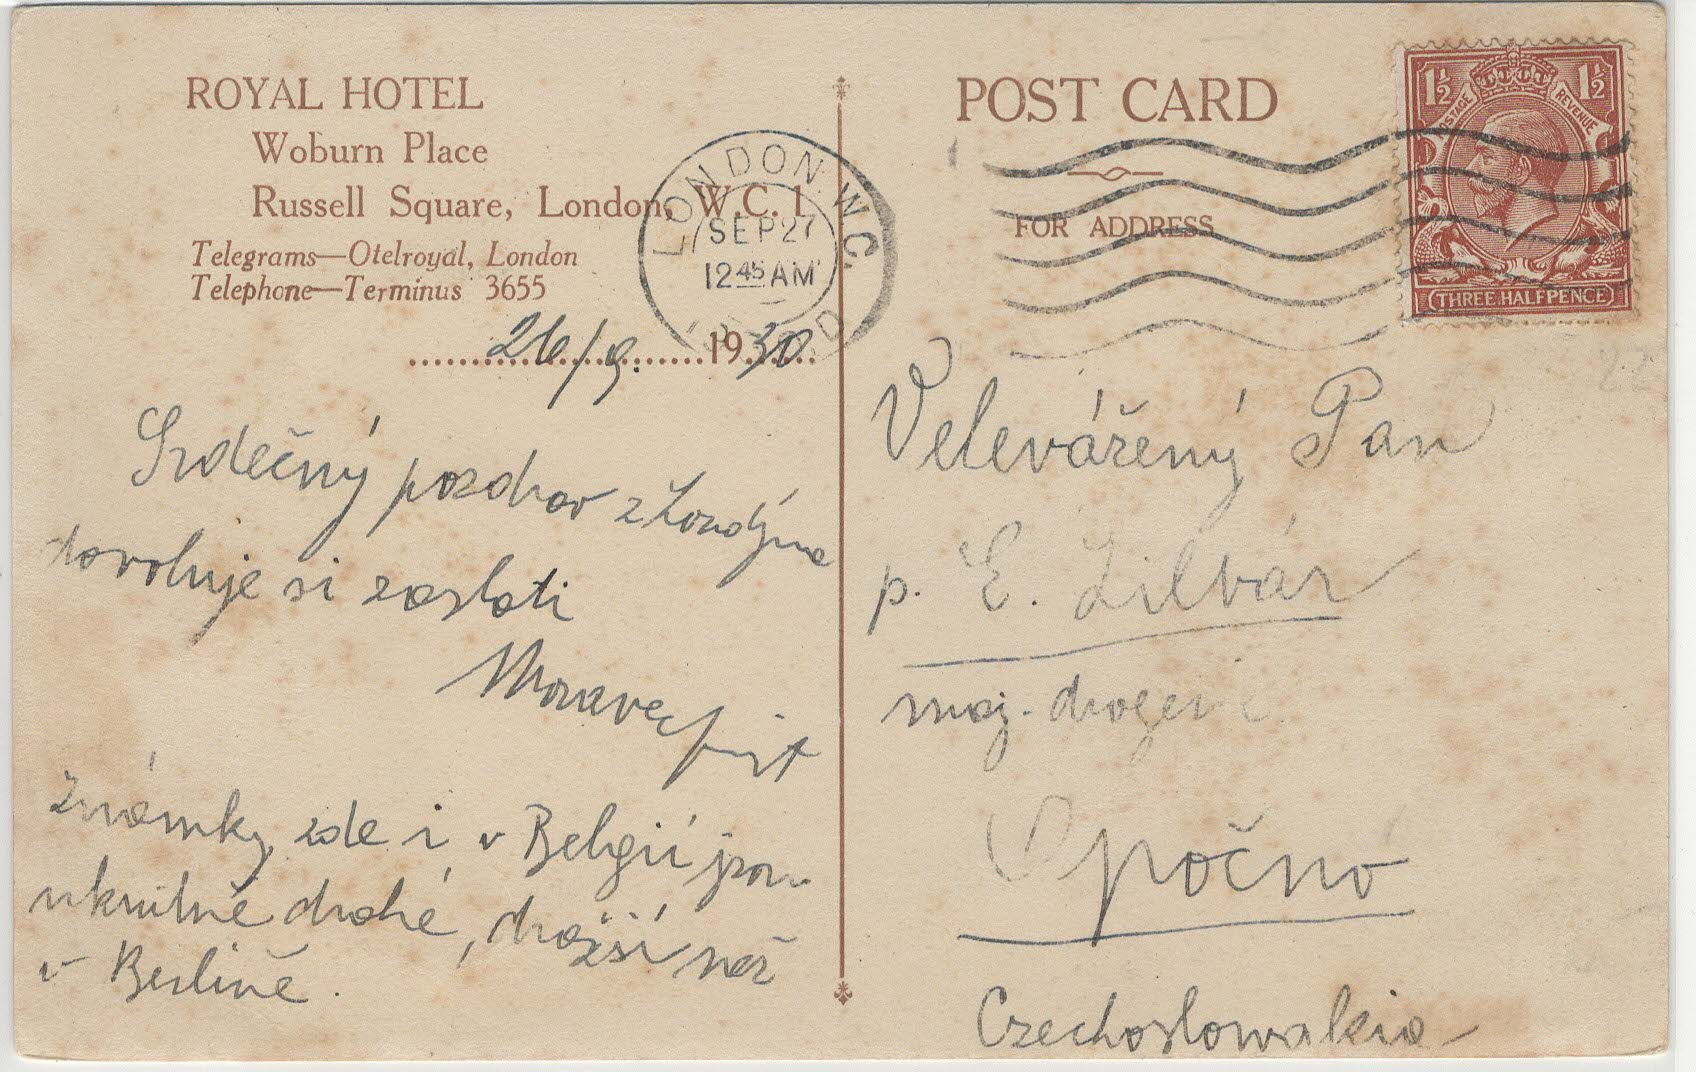 ROYAL HOTEL
Woburn Place
Russell Square, London, W.C. 1
Telegrams—Otelroyal, London
Telephone—Terminus 3655
26/9. 1930
Srdečný pozdrav z Londýna
dovoluje si zaslati
Známky zde i v Belgii jsou
ukrutně drahé, dražší než
v Berlíně.
LONDON. W.C.
SEP 27
12 45 AM
POST CARD
FOR ADDRESS
1½ 1½
POSTAGE REVENUE
THREE HALFPENCE
Velevážený Pan
p. E. Žilvár
maj. drogerie
Opočno
Czechoslowakia